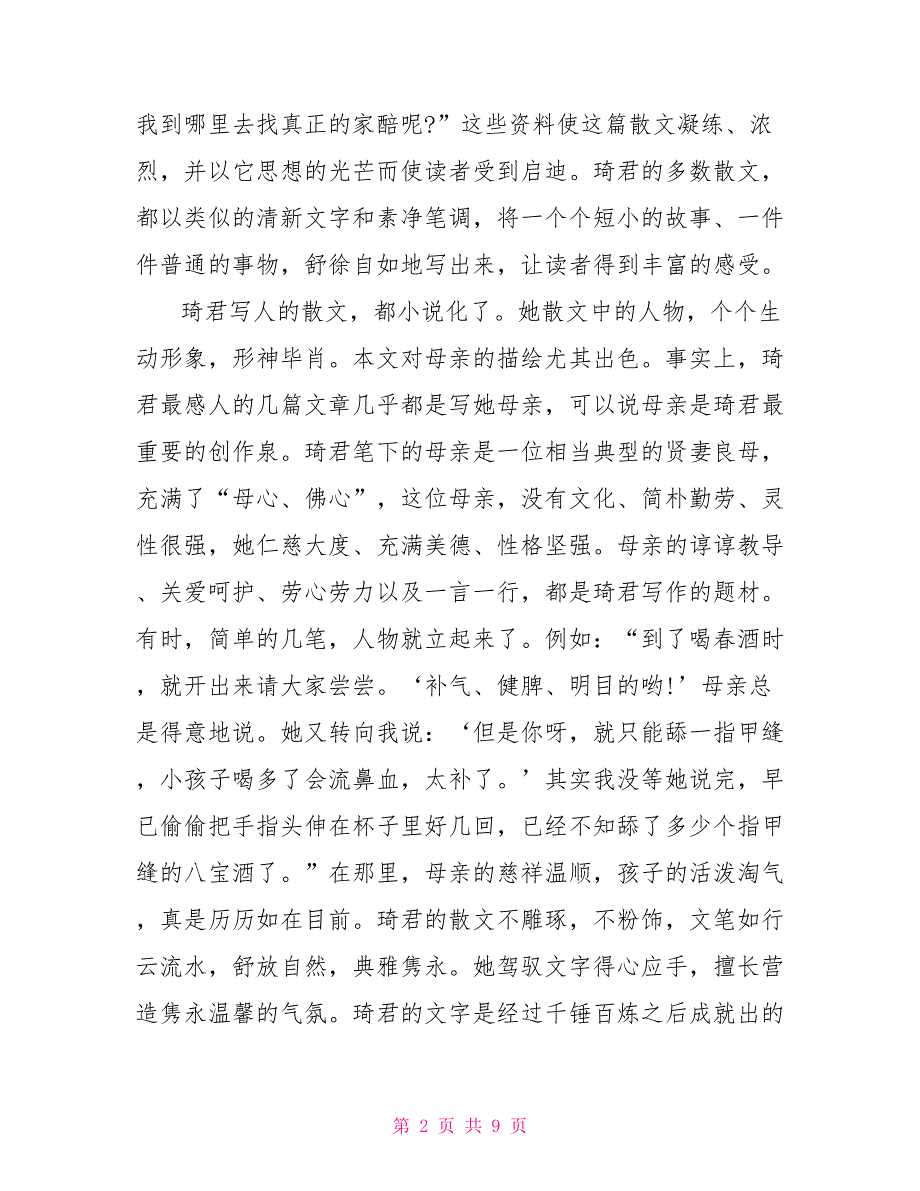 我到哪里去找真正的家醅呢?”这些资料使这篇散文凝练、浓
烈，并以它思想的光芒而使读者受到启迪。琦君的多数散文，
都以类似的清新文字和素净笔调，将一个个短小的故事、一件
件普通的事物，舒徐自如地写出来，让读者得到丰富的感受。
琦君写人的散文，都小说化了。她散文中的人物，个个生
动形象，形神毕肖。本文对母亲的描绘尤其出色。事实上，琦
君最感人的几篇文章几乎都是写她母亲，可以说母亲是琦君最
重要的创作泉。琦君笔下的母亲是一位相当典型的贤妻良母，
充满了“母心、佛心”，这位母亲，没有文化、简朴勤劳、灵
性很强，她仁慈大度、充满美德、性格坚强。母亲的谆谆教导
、关爱呵护、劳心劳力以及一言一行，都是琦君写作的题材。
有时，简单的几笔，人物就立起来了。例如：“到了喝春酒时
，就开出来请大家尝尝。‘补气、健脾、明目的哟!’母亲总
是得意地说。她又转向我说：‘但是你呀，就只能舔一指甲缝
，小孩子喝多了会流鼻血，太补了。’其实我没等她说完，早
已偷偷把手指头伸在杯子里好几回，已经不知舔了多少个指甲
缝的八宝酒了。”在那里，母亲的慈祥温顺，孩子的活泼淘气
，真是历历如在目前。琦君的散文不雕琢，不粉饰，文笔如行
云流水，舒放自然，典雅隽永。她驾驭文字得心应手，擅长营
造隽永温馨的气氛。琦君的文字是经过千锤百炼之后成就出的
第 2 页 共 9 页